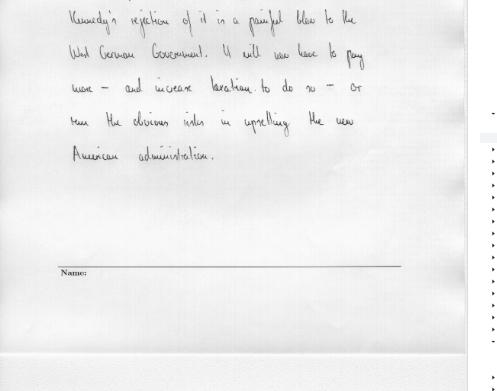 Kennedy's rejection of it is a painful blow to the
West German Government. It will now have to pay
more - and increase taxation to do so - or
run the obvious risks in upsetting the new
American administration.
Name: